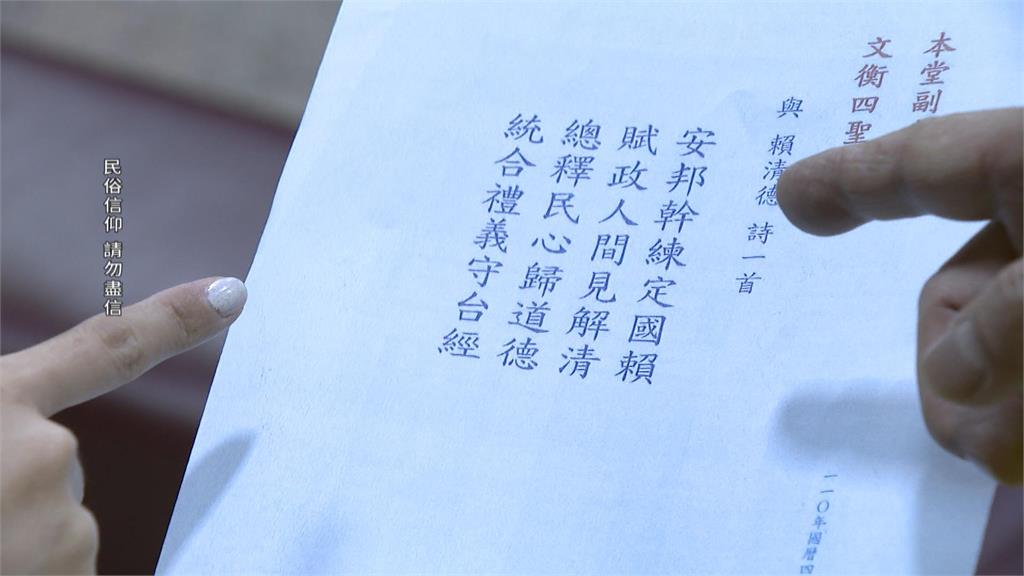 本堂副
文衡四聖
與 賴清德 詩一首
安邦幹練定國賴
賦政人間見解清
總釋民心歸道德
統合禮義守台經
一一〇年國曆四
民俗信仰 請勿盡信